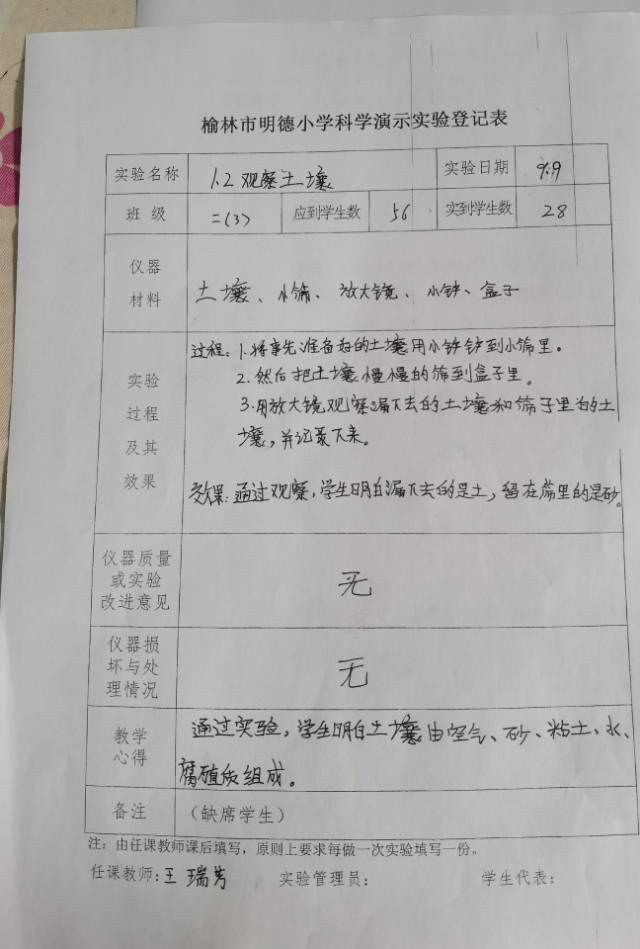 榆林市明德小学科学演示实验登记表
实验名称 1.2 观察土壤 实验日期 9.9
班 级 二(3) 应到学生数 56 实到学生数 28
仪器
材料
土壤、小筛、放大镜、小铲、盒子
实验
过程
及其
效果
过程:1.将事先准备好的土壤用小铲铲到小筛里。
2.然后把土壤慢慢的筛到盒子里。
3.用放大镜观察漏下去的土壤和筛子里的土
壤,并记录下来。
效果:通过观察,学生明白漏下去的是土,留在筛里的是砂。
仪器质量
或实验
改进意见
无
仪器损
坏与处
理情况
无
教学
心得
通过实验,学生明白土壤由空气、砂、粘土、水、
腐植质组成。
备注 (缺席学生)
注:由任课教师课后填写,原则上要求每做一次实验填写一份。
任课教师:王瑞芳 实验管理员: 学生代表: